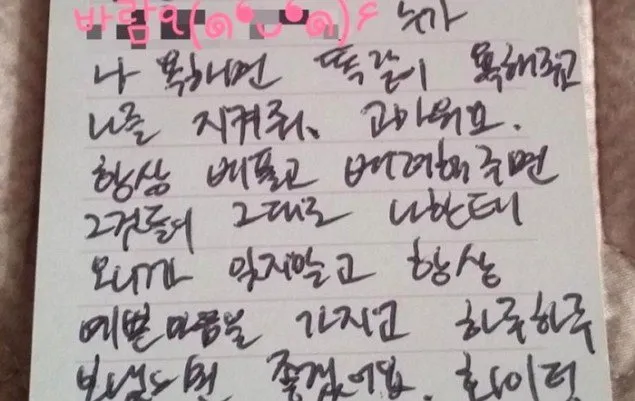 누가
나 욕하면 똑같이 욕해주고
나를 지켜줘. 고마워요.
항상 베풀고 배려해주면
그것들이 그대로 나한테
오니까 잊지말고 항상
예쁜 마음을 가지고 하루하루
보냈으면 좋겠어요. 화이팅